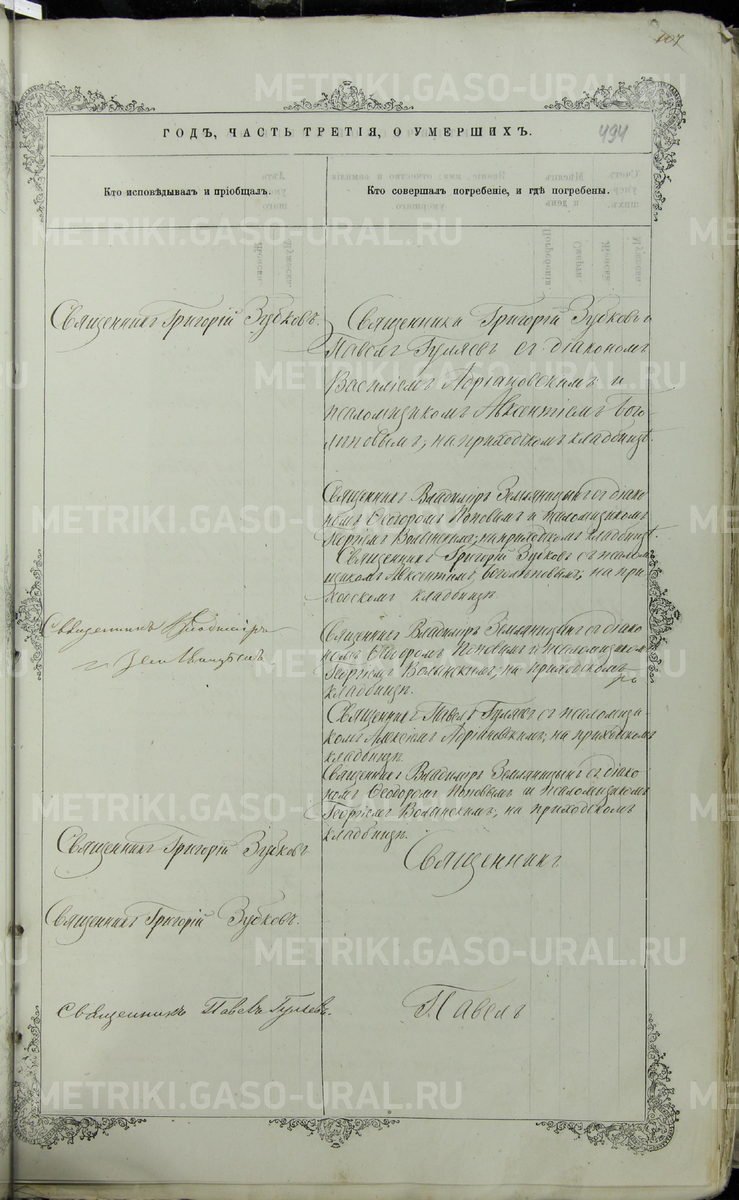 107
METRIKI.GASO-URAL.RU
ГОДЪ, ЧАСТЬ ТРЕТІЯ, О УМЕРШИХЪ.
494
Кто исповѣдывалъ и пріобщалъ.
Кто совершалъ погребеніе, и гдѣ погребены.
Священникъ Григорій Зубковъ.
Священники Григорій Зубковъ и
Павелъ Гуляевъ съ діакономъ
Василіемъ Адріановскимъ и
псаломщикомъ Авксентіемъ Бого
лѣповымъ, на приходскомъ кладбищѣ.
Священникъ Владиміръ Земляницынъ съ діако
номъ Ѳеодоромъ Поповымъ и псаломщикомъ
Георгіемъ Волынскимъ, на приходскомъ кладбищѣ.
Священникъ Григорій Зубковъ съ псалом
щикомъ Авксентіемъ Боголѣповымъ, на при
ходскомъ кладбищѣ.
Священникъ Владиміръ
Земляницынъ
Священникъ Владиміръ Земляницынъ съ діако
номъ Ѳеодоромъ Поповымъ и псаломщикомъ
Георгіемъ Волынскимъ, на приходскомъ
кладбищѣ.
Священникъ Павелъ Гуляевъ съ псаломщи-
комъ Алексіемъ Адріановскимъ, на приходскомъ
кладбищѣ.
Священникъ Владиміръ Земляницынъ съ діако
номъ Ѳеодоромъ Поповымъ и псаломщикомъ
Георгіемъ Волынскимъ, на приходскомъ
кладбищѣ.
Священникъ Григорій Зубковъ
Священникъ
Священникъ Григорій Зубковъ.
Священникъ Павелъ Гуляевъ.
Павелъ